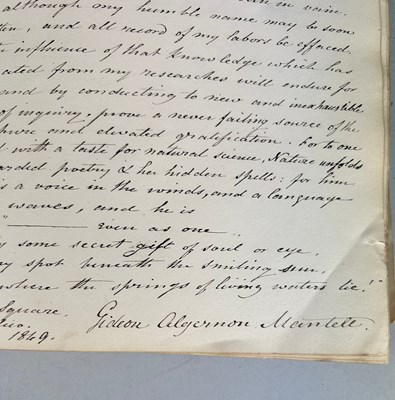 although my humble name may be soon
, and all record of my labors be effaced.
influence of that knowledge which has
ated from my researches will endure for
and by conducting to new and inexhaustible
of inquiry, prove a never failing source of the
pure and elevated gratification. For to one
with a taste for natural science, Nature unfolds
arded poetry & her hidden spells: for him
is a voice in the winds, and a language
waves, and he is
"——— even as one
y some secret gift of soul or eye,
ry spot beneath the smiling sun,
where the springs of living waters lie!"
Square.
1849.
Gideon Algernon Mantell.